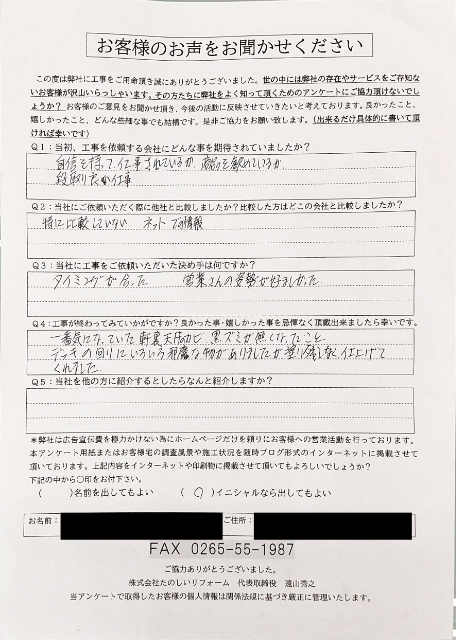 お客様のお声をお聞かせください
この度は弊社に工事をご用命頂き誠にありがとうございました。世の中には弊社の存在やサービスをご存知な
いお客様が沢山いらっしゃいます。その方たちに弊社をよく知って頂くためのアンケートにご協力頂けないでし
ょうか？ お客様のご意見をお聞かせ頂き、今後の活動に反映させていきたいと考えております。良かったこと、
嬉しかったこと、どんな些細な事でも結構です。是非ご協力をお願い致します。（出来るだけ具体的に書いて頂
ければ幸いです）
Q1：当初、工事を依頼する会社にどんな事を期待されていましたか？
自信を持って仕事されているか
段取り良い仕事
Q2：当社にご依頼いただく際に他社と比較しましたか？比較した方はどこの会社と比較しましたか？
特に比較していない ネットでの情報
Q3：当社に工事をご依頼いただいた決め手は何ですか？
タイミングが合った 営業さんの姿勢が好ましかった
Q4：工事が終わってみていかがですか？良かった事・嬉しかった事を忌憚なく頂戴出来ましたら幸いです。
一番気になっていた軒裏天井のカビ 黒ズミが無くなったこと
デッキの回りにいろいろ邪魔な物がありましたが塗り残しなく仕上げて
くれました
Q5：当社を他の方に紹介するとしたらなんと紹介しますか？
＊弊社は広告宣伝費を極力かけない為にホームページだけを頼りにお客様への営業活動を行っております。
本アンケート用紙またはお客様宅の調査風景や施工状況を随時ブログ形式のインターネットに掲載させて
頂いております。上記内容をインターネットや印刷物に掲載させて頂いてもよろしいでしょうか？
下記の中から〇印をお付下さい。
（ ）名前を出してもよい （ 〇 ）イニシャルなら出してもよい
お名前： ご住所：
FAX 0265-55-1987
ご協力ありがとうございました。
株式会社たのしいリフォーム 代表取締役 遠山秀之
当アンケートで取得したお客様の個人情報は関係法規に基づき厳正に管理いたします。